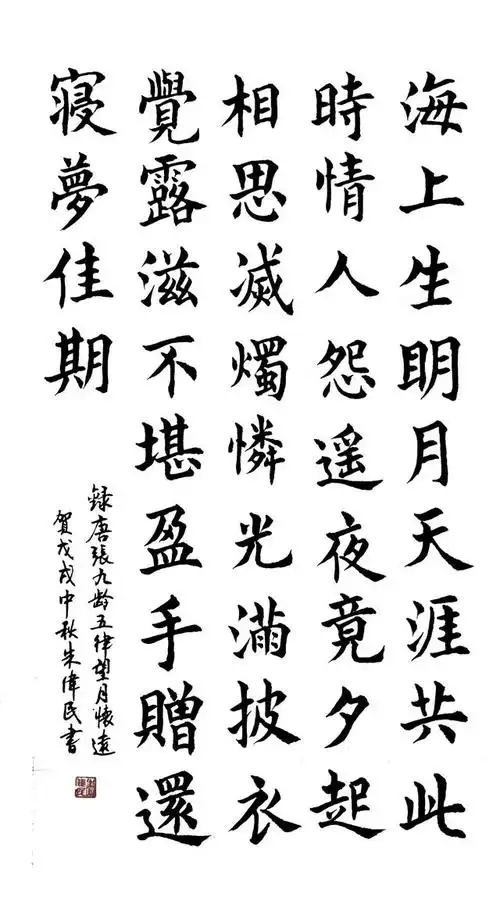 海上生明月天涯共此
時情人怨遥夜竟夕起
相思滅燭憐光滿披衣
覺露滋不堪盈手贈還
寢夢佳期
錄唐張九龄五律望月懷遠
賀戊戌中秋朱偉民書